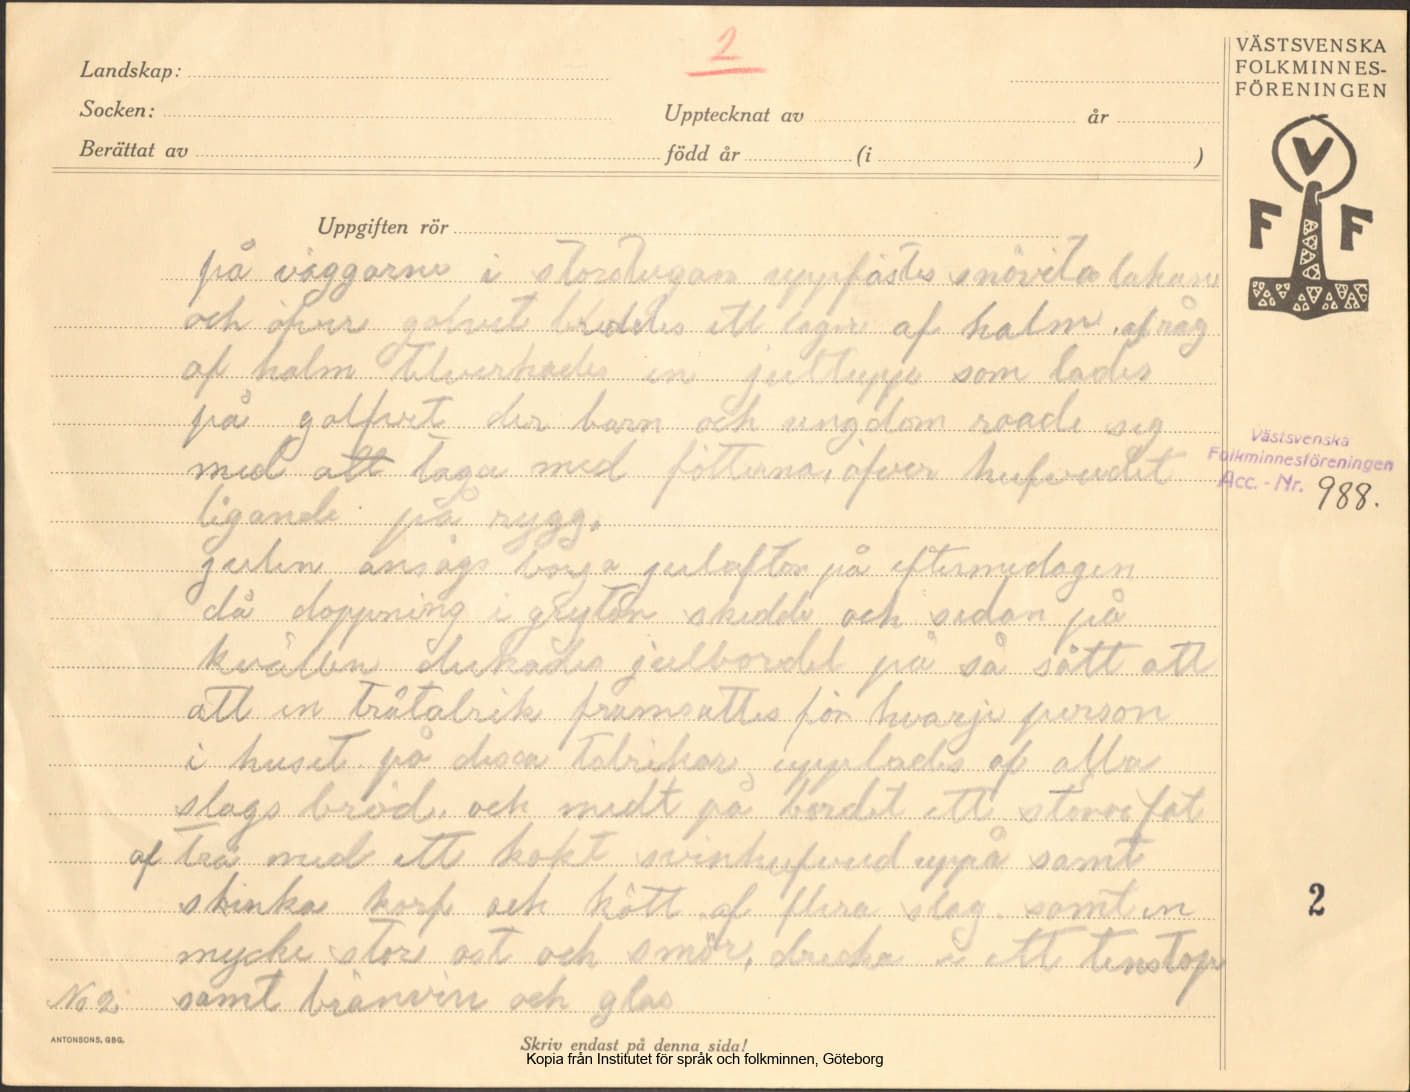 2
Landskap:
Socken:
Upptecknat av
år
Berättat av
född år
(i
)
Uppgiften rör
på väggarne i storstugan uppfästes snövita lakan
och öfver golvet breddes ett lager af halm af råg
af halm tilverkades en jultupp som lades
på golfvet der barn och ungdom roade sig
med att taga med fötterna, öfver hufvudet
ligande på rygg.
julen ansågs börja julafton på eftermedagen
då doppning i grytan skedde och sedan på
kvällen dukades julbordet på så sätt att
att en trätalrik framsattes för hvarje person
i huset på dessa talrikar upplades af alla
slags bröd. och midt på bordet ett stort fat
af trä med ett kokt svinhufvud uppå samt
skinka korf och kött af flera slag. samt en
mycke stor ost och smör, dricka i ett tenstop
samt bränvin och glas
No 2
ANTONSONS, GBG.
Skriv endast på denna sida!
Kopia från Institutet för språk och folkminnen, Göteborg
VÄSTSVENSKA
FOLKMINNES-
FÖRENINGEN
V
F F
Västsvenska
Folkminnesföreningen
Acc. - Nr. 988.
2